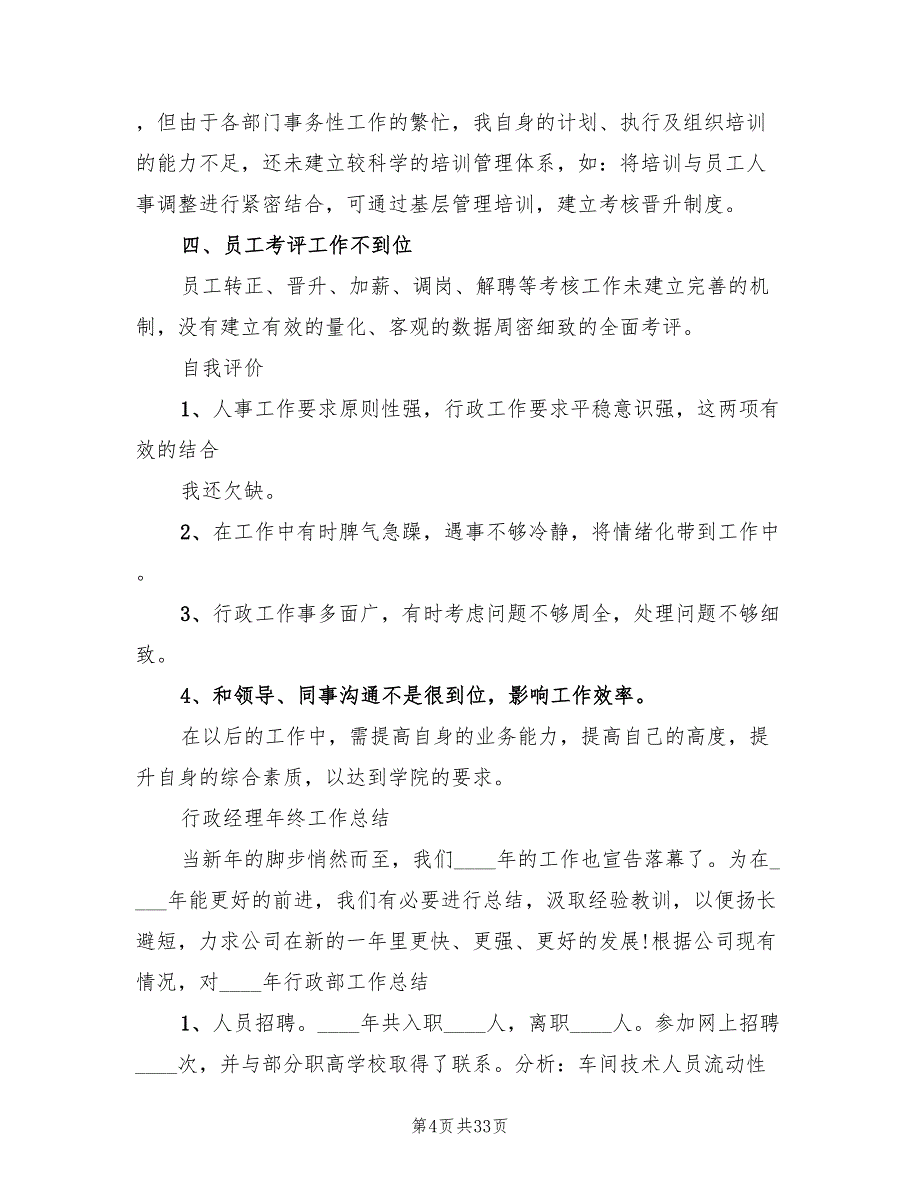 ，但由于各部门事务性工作的繁忙，我自身的计划、执行及组织培训
的能力不足，还未建立较科学的培训管理体系，如：将培训与员工人
事调整进行紧密结合，可通过基层管理培训，建立考核晋升制度。
四、员工考评工作不到位
员工转正、晋升、加薪、调岗、解聘等考核工作未建立完善的机
制，没有建立有效的量化、客观的数据周密细致的全面考评。
自我评价
1、人事工作要求原则性强，行政工作要求平稳意识强，这两项有
效的结合
我还欠缺。
2、在工作中有时脾气急躁，遇事不够冷静，将情绪化带到工作中
。
3、行政工作事多面广，有时考虑问题不够周全，处理问题不够细
致。
4、和领导、同事沟通不是很到位，影响工作效率。
在以后的工作中，需提高自身的业务能力，提高自己的高度，提
升自身的综合素质，以达到学院的要求。
行政经理年终工作总结
当新年的脚步悄然而至，我们____年的工作也宣告落幕了。为在_
___年能更好的前进，我们有必要进行总结，汲取经验教训，以便扬长
避短，力求公司在新的一年里更快、更强、更好的发展!根据公司现有
情况，对____年行政部工作总结
1、人员招聘。____年共入职____人，离职____人。参加网上招聘
____次，并与部分职高学校取得了联系。分析：车间技术人员流动性
第4页共33页